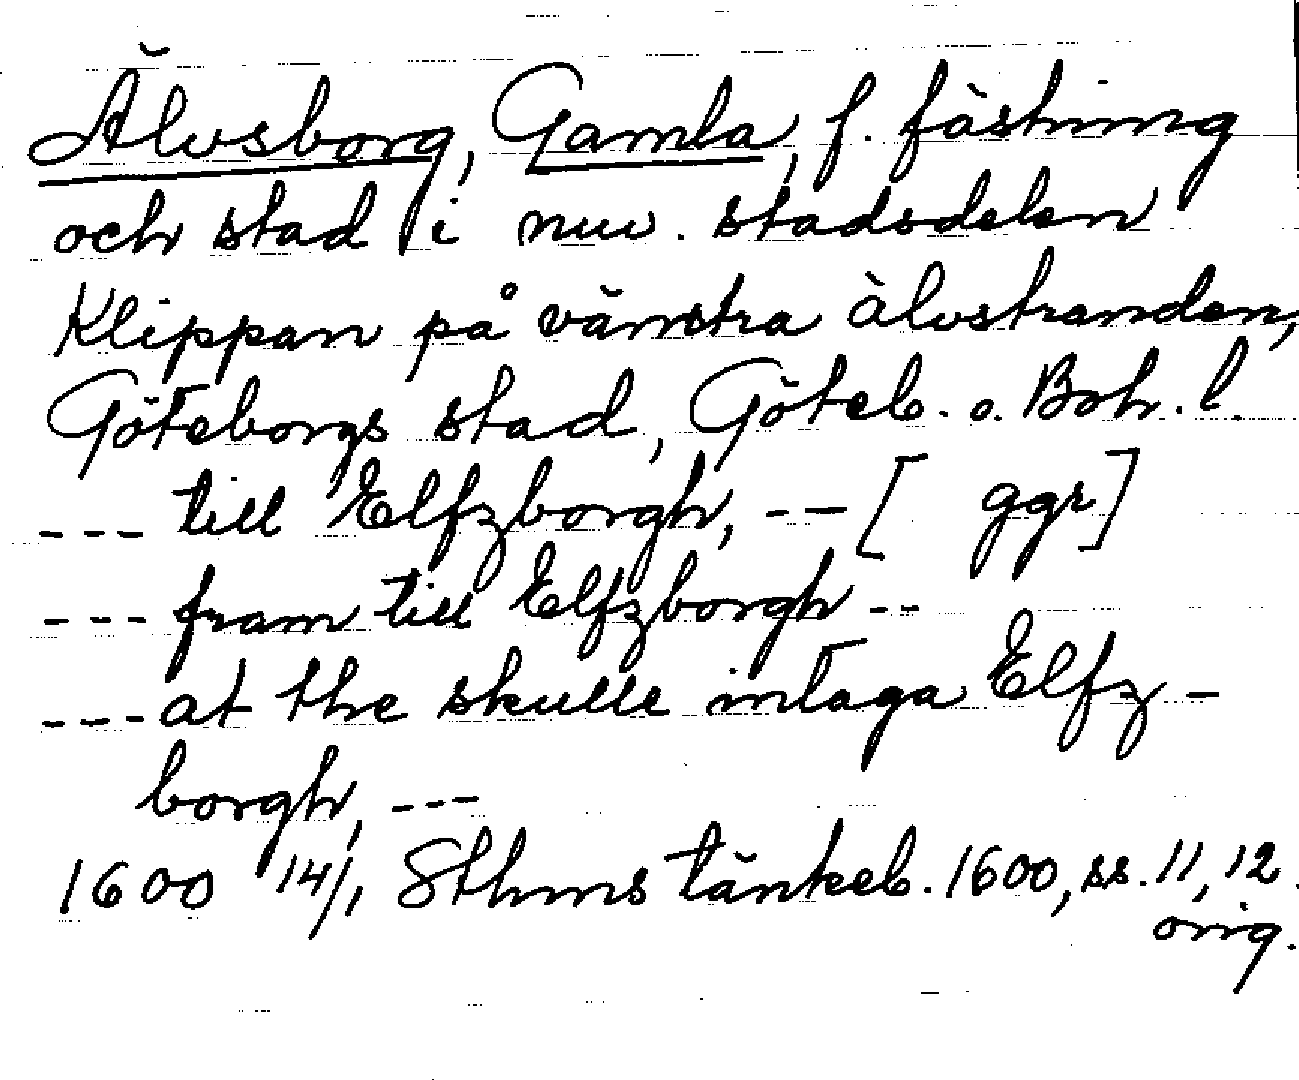 Älvsborg, Gamla, f. fästning
och stad i nuv. stadsdelen
Klippan på vänstra älvstranden,
Göteborgs stad, Göteb. o. Boh. l.
--- till Elfzborgh, -- [ ggr]
--- fram till Elfzborgh --
--- at the skulle intaga Elfz-
borgh, ---
1600 14/1 Sthms tänkeb. 1600, ss. 11, 12
orig.